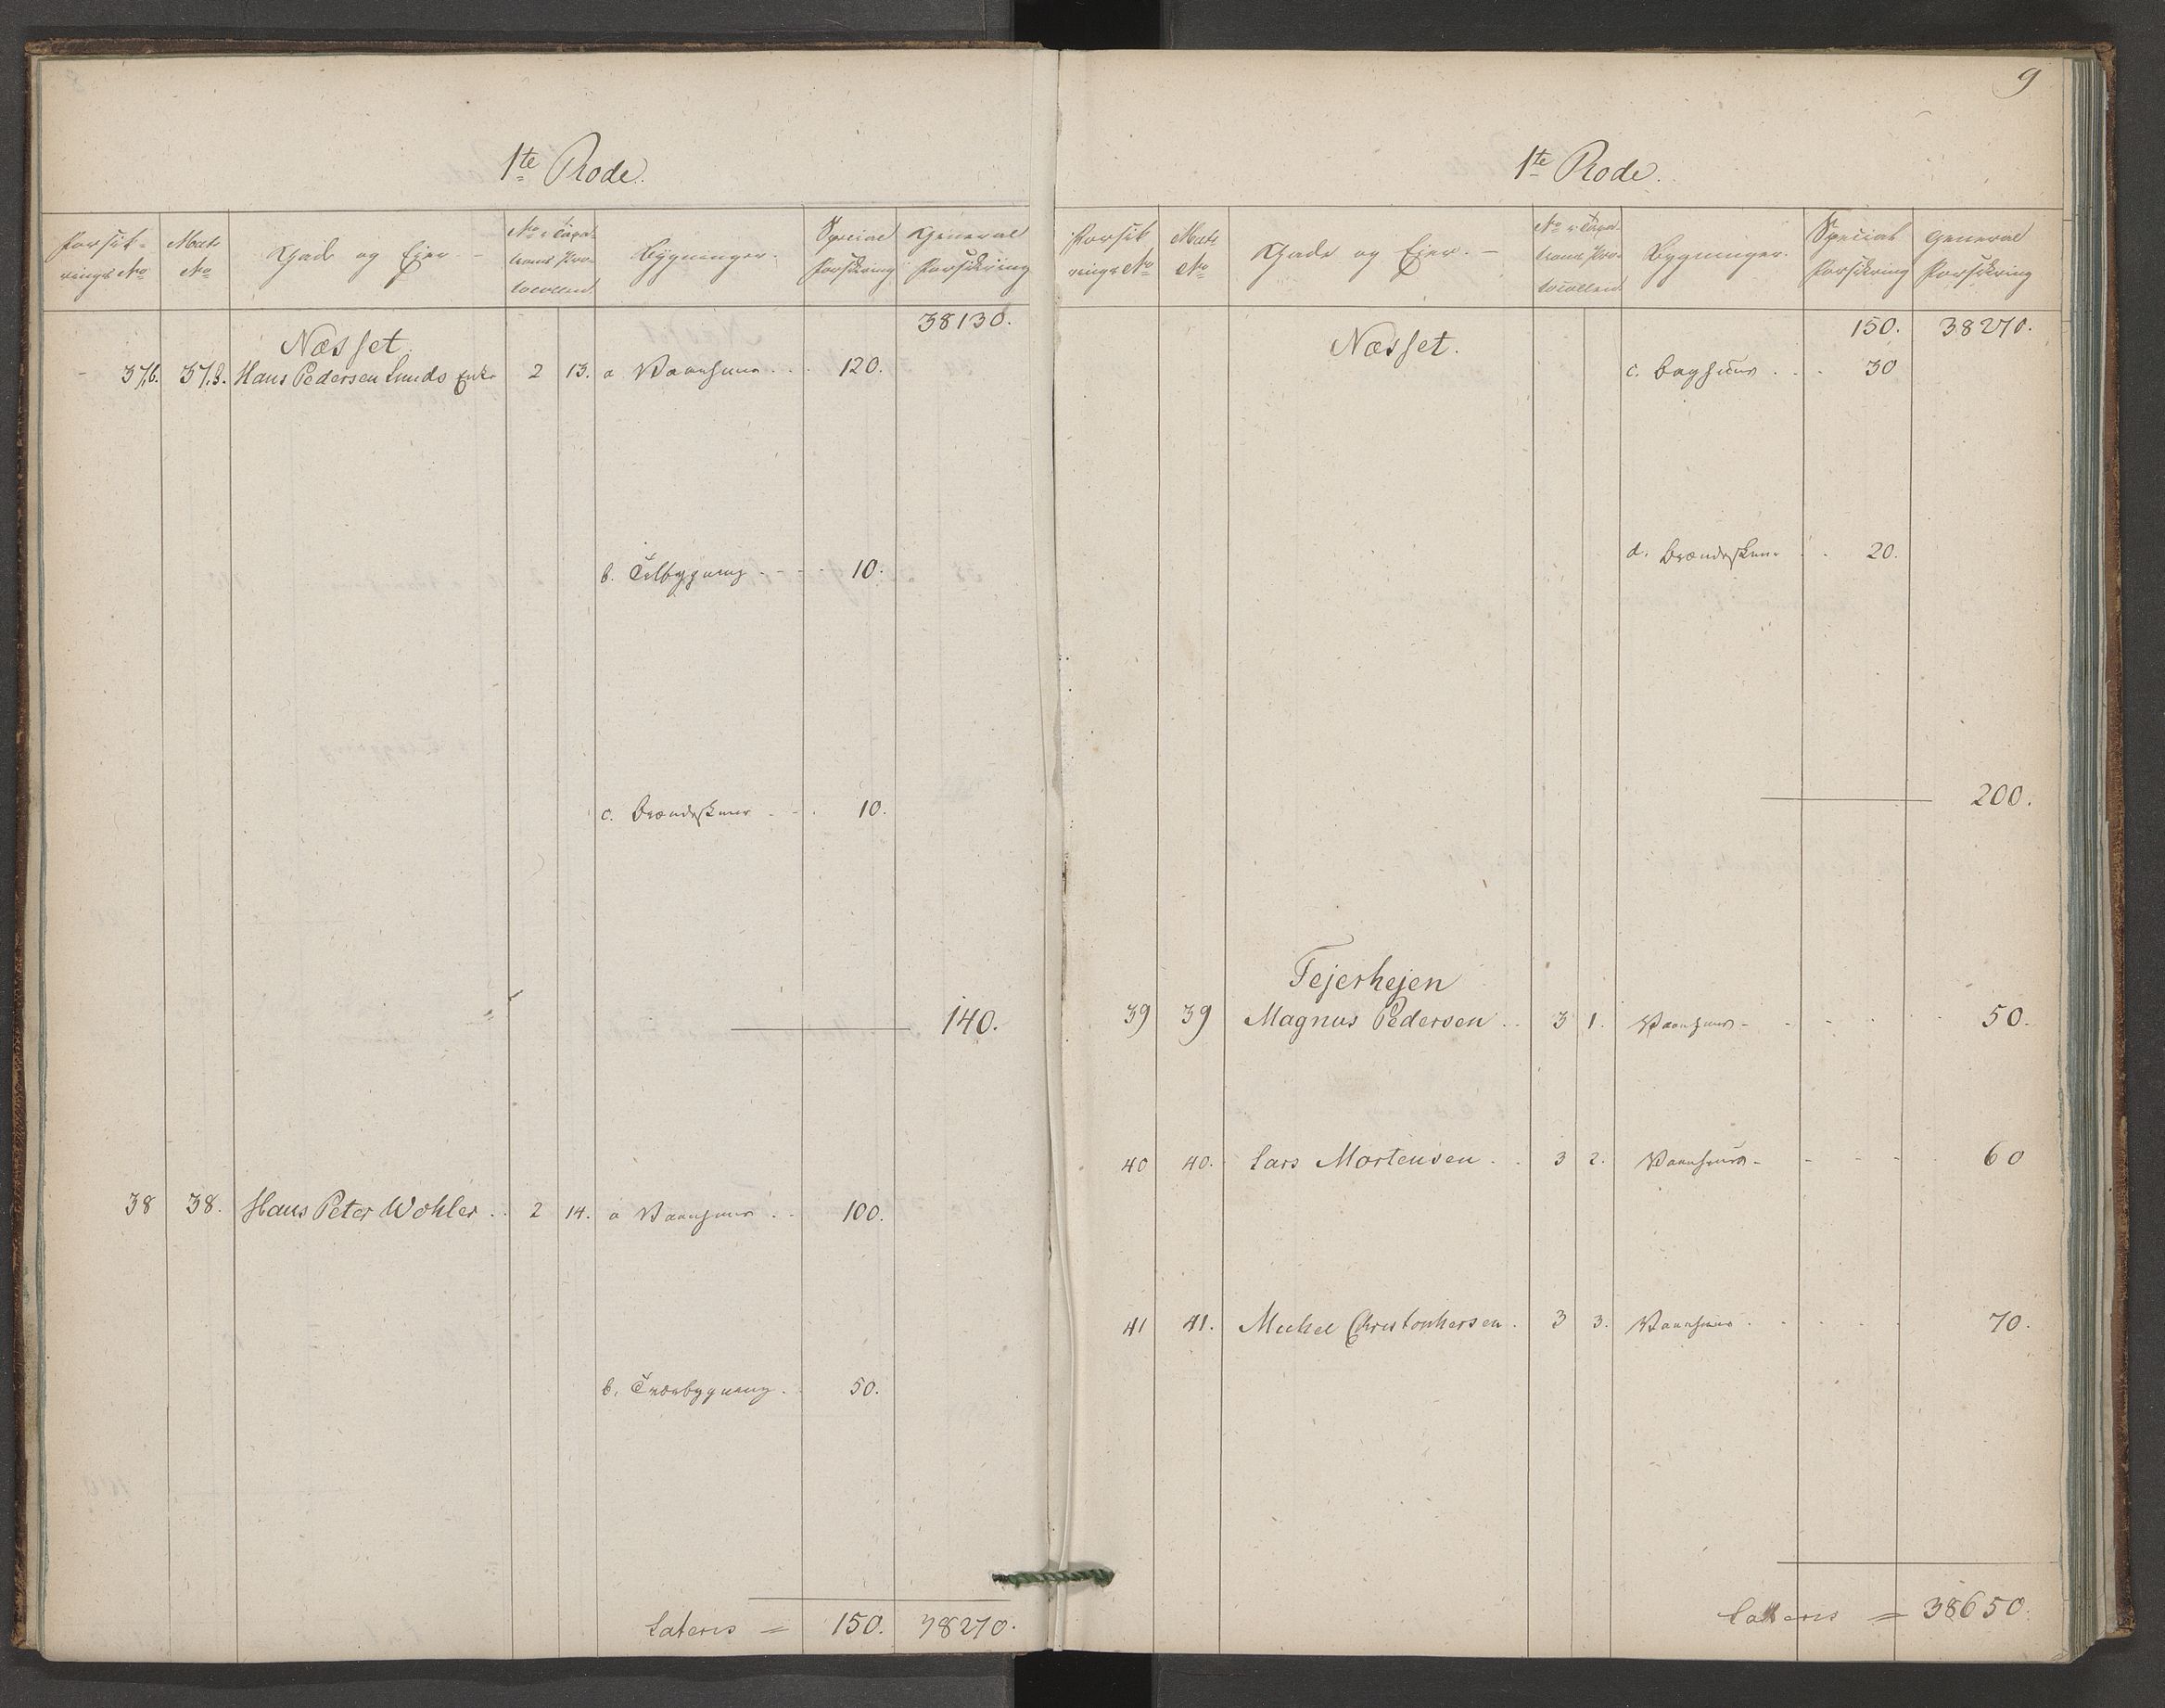 1te Rode.
Forsik-
rings No
Matr
No
Gade og Eier. -
No i Taxa-
tions Pro-
tocollen
Bygninger.
Special
Forsikring
General
Forsikring
38130.
Næsset.
37,b. 37,B. Hans Pedersen Lunds Enke 2 13. a Vaanhuus . . . 120.
b. Tilbygning - - - - 10.
c. Brændeskuur - - . 10.
140.
38 38. Hans Peter Wohler . . 2 14. a Vaanhuus . . 100.
b. Tværbygning . . 50.
Lateris = 150. 38270.
9
1te Rode.
Forsik
rings No
Matr
No
Gade og Eier. -
No i Taxa-
tions Pro-
tocollen
Bygninger.
Special
Forsikring
General
Forsikring
150. 38270.
Næsset.
c. Baghuus . . . 30
d. Brændeskuur . . 20.
200.
Fejerhejen
39 39 Magnus Pedersen . . 3 1. Vaanhuus - - - - - 50.
40 40. Lars Mortensen . . 3 2. Vaanhuus - - - - . 60
41 41. Mickel Christophersen . 3 3. Vaanhuus . . . . . 70.
Lateris = 38650.